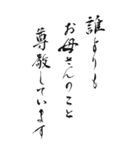 誰よりも
お母さんのこと
尊敬しています